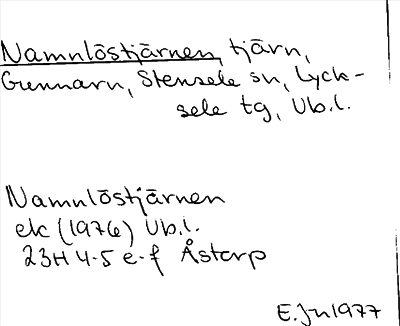 Namnlöstjärnen, tjärn,
Gunnarn, Stensele sn, Lyck-
sele tg, Vb.l.
Namnlöstjärnen
ek (1976) Vb.l.
23H 4-5 e-f Åstorp
E.Jn 1977